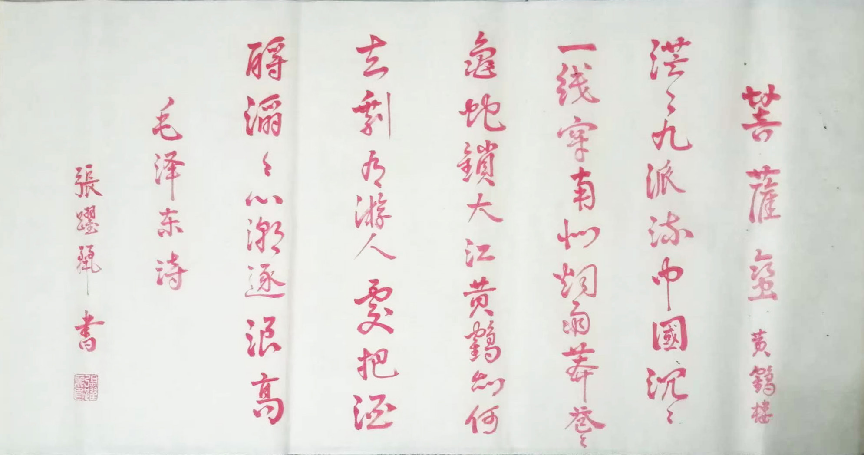 菩薩蛮 黄鶴樓
茫々九派流中國沉々
一线穿南北烟雨莽苍々
龟蛇鎖大江黄鶴知何
去剩有游人處把酒
酹滔々心潮逐浪高
毛泽东诗
張躍 書